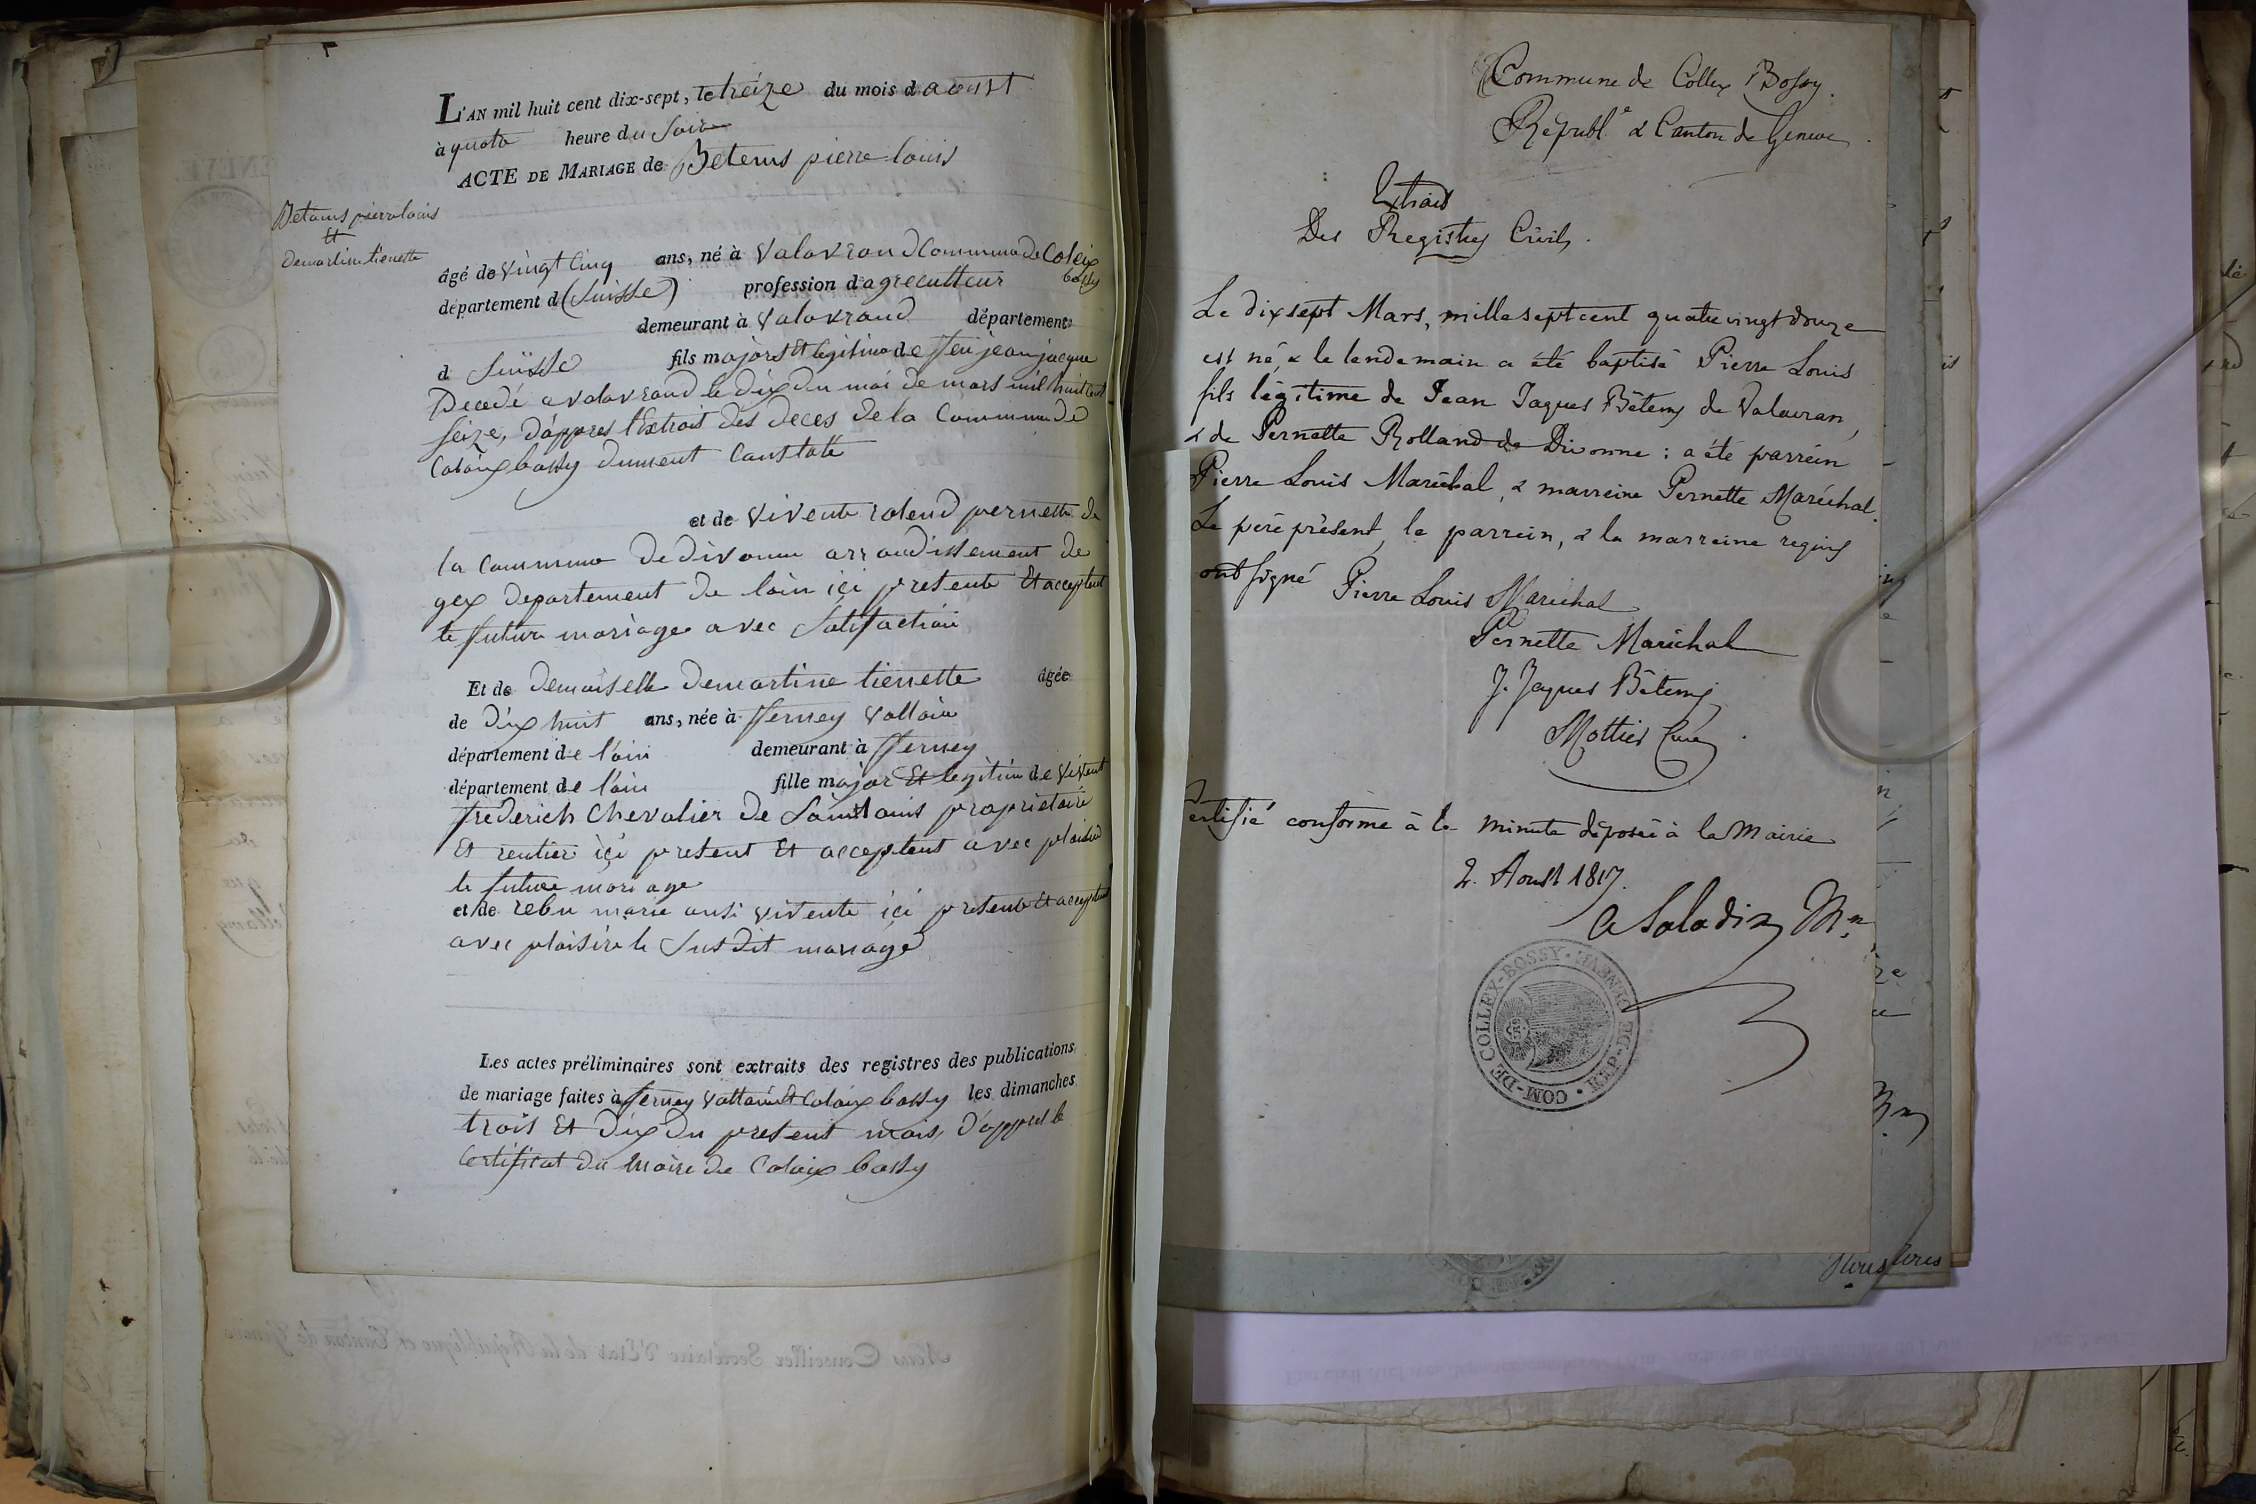 L'AN mil huit cent dix-sept, le treize du mois d aoust
à quatre heure du soir
ACTE DE MARIAGE de Betems pierre louis
Betems pierre louis
et
demartine tienette
âgé de vingt cinq ans, né à valavrand Commune de Colaix
bossy
département d (Suisse) profession d'agreculteur
demeurant à valavrand département
d Suisse fils majors et legitime de feu jean jacque
Decedé a valavrand le dix du moi de mars mil huit cent
seize, d'appres l'Extrait des deces de la Commune de
Colaix bossy dument Constaté
et de vivente rolend pernette de
la commune de divonne arrondissement de
gex departement de lain ici presente et acceptent
le future mariage avec satisfaction
Et de demoiselle demartine tienette âgée
de dix huit ans, née à ferney voltaire
département de l'ain demeurant à ferney
département de l'ain fille major et legitim de vivent
frederich Chevalier de Saint louis proprietaire
et rentier içi present et acceptent avec plaisir
le future mariage
et de rebu marie ausi vivente içi presente et acceptent
avec plaisire le susdit mariage
Les actes préliminaires sont extraits des registres des publications
de mariage faites à ferney voltaire et Colaix bossy les dimanches
trois et dix du present mois, d'apprel le
Certificat du Maire de Colaix bossy
Nous Conseiller Secrétaire d'Etat de la République et Canton de Genève
Commune de Collex Bossy.
Républ.e & Canton de Geneve
Extrait
Des Registres Civils.
Le dix sept Mars, mille sept cent quatre vingt douze
est né, & le lendemain a été baptisé Pierre Louis
fils légitime de Jean Jaques Bétems de Valavran,
& de Pernette Rolland de Divonne : a été parrein
Pierre Louis Maréchal, & marreine Pernette Maréchal.
Le père présent, le parrein, & la marreine requis
ont signé Pierre Louis Maréchal
Pernette Maréchal
J. Jaques Bétems
Mottier Curé
Certifié conforme à la minute déposée à la Mairie
2. Aoust 1817.
A Saladin Mre
COM-DE COLLEX-BOSSY · REP-DE GENEVE ·